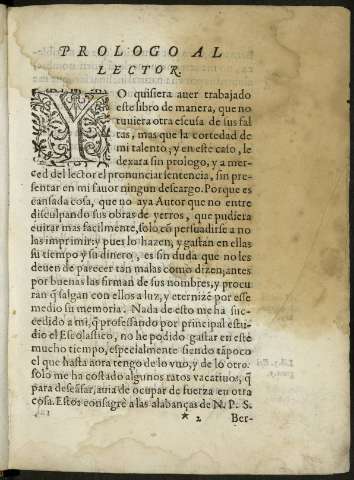 PROLOGO AL
LECTOR.
YO quisiera auer trabajado
este libro de manera, que no
tuuiera otra escusa de sus fal
tas, mas que la cortedad de
mi talento, y en este caso, le
dexara sin prologo, y a mer-
ced del lector el pronunciar sentencia, sin pre-
sentar en mi fauor ningun descargo. Porque es
cansada cosa, que no aya Autor que no entre
disculpando sus obras de yerros, que pudiera
euitar mas facilmente, solo cõ persuadirse a no
las imprimir: y pues lo hazen, y gastan en ellas
su tiempo y su dinero, es sin duda que no les
deuen de parecer tan malas como dizen; antes
por buenas las firman de sus nombres, y procu
ran q̃ salgan con ellos a luz, y eternizẽ por esse
medio su memoria. Nada de esto me ha suc-
cedido a mi, q̃ professando por principal estu-
dio el Escolastico, no he podido gastar en este
mucho tiempo, especialmente siendo tãpoco
el que hasta aora tengo de lo vno, y de lo otro.
solo me ha costado algunos ratos vacatiuos, q̃
para descãsar, auia de ocupar de fuerza en otra
cosa. Estos consagrè a las alabanças de N. P. S.
* 2 Ber-